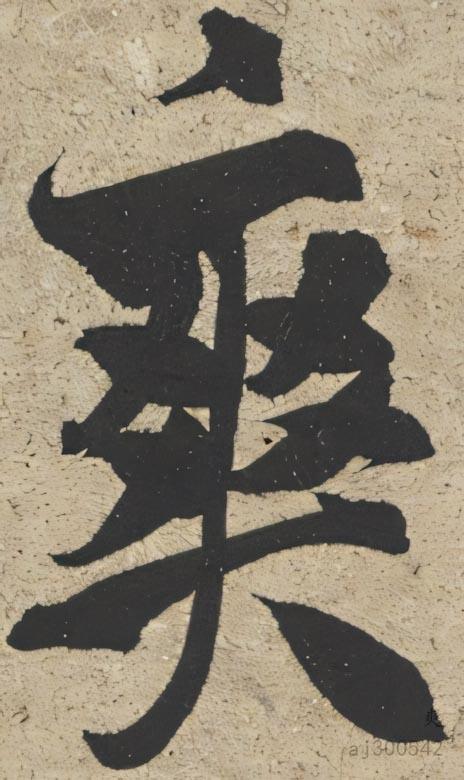 爽
爽
aj300542